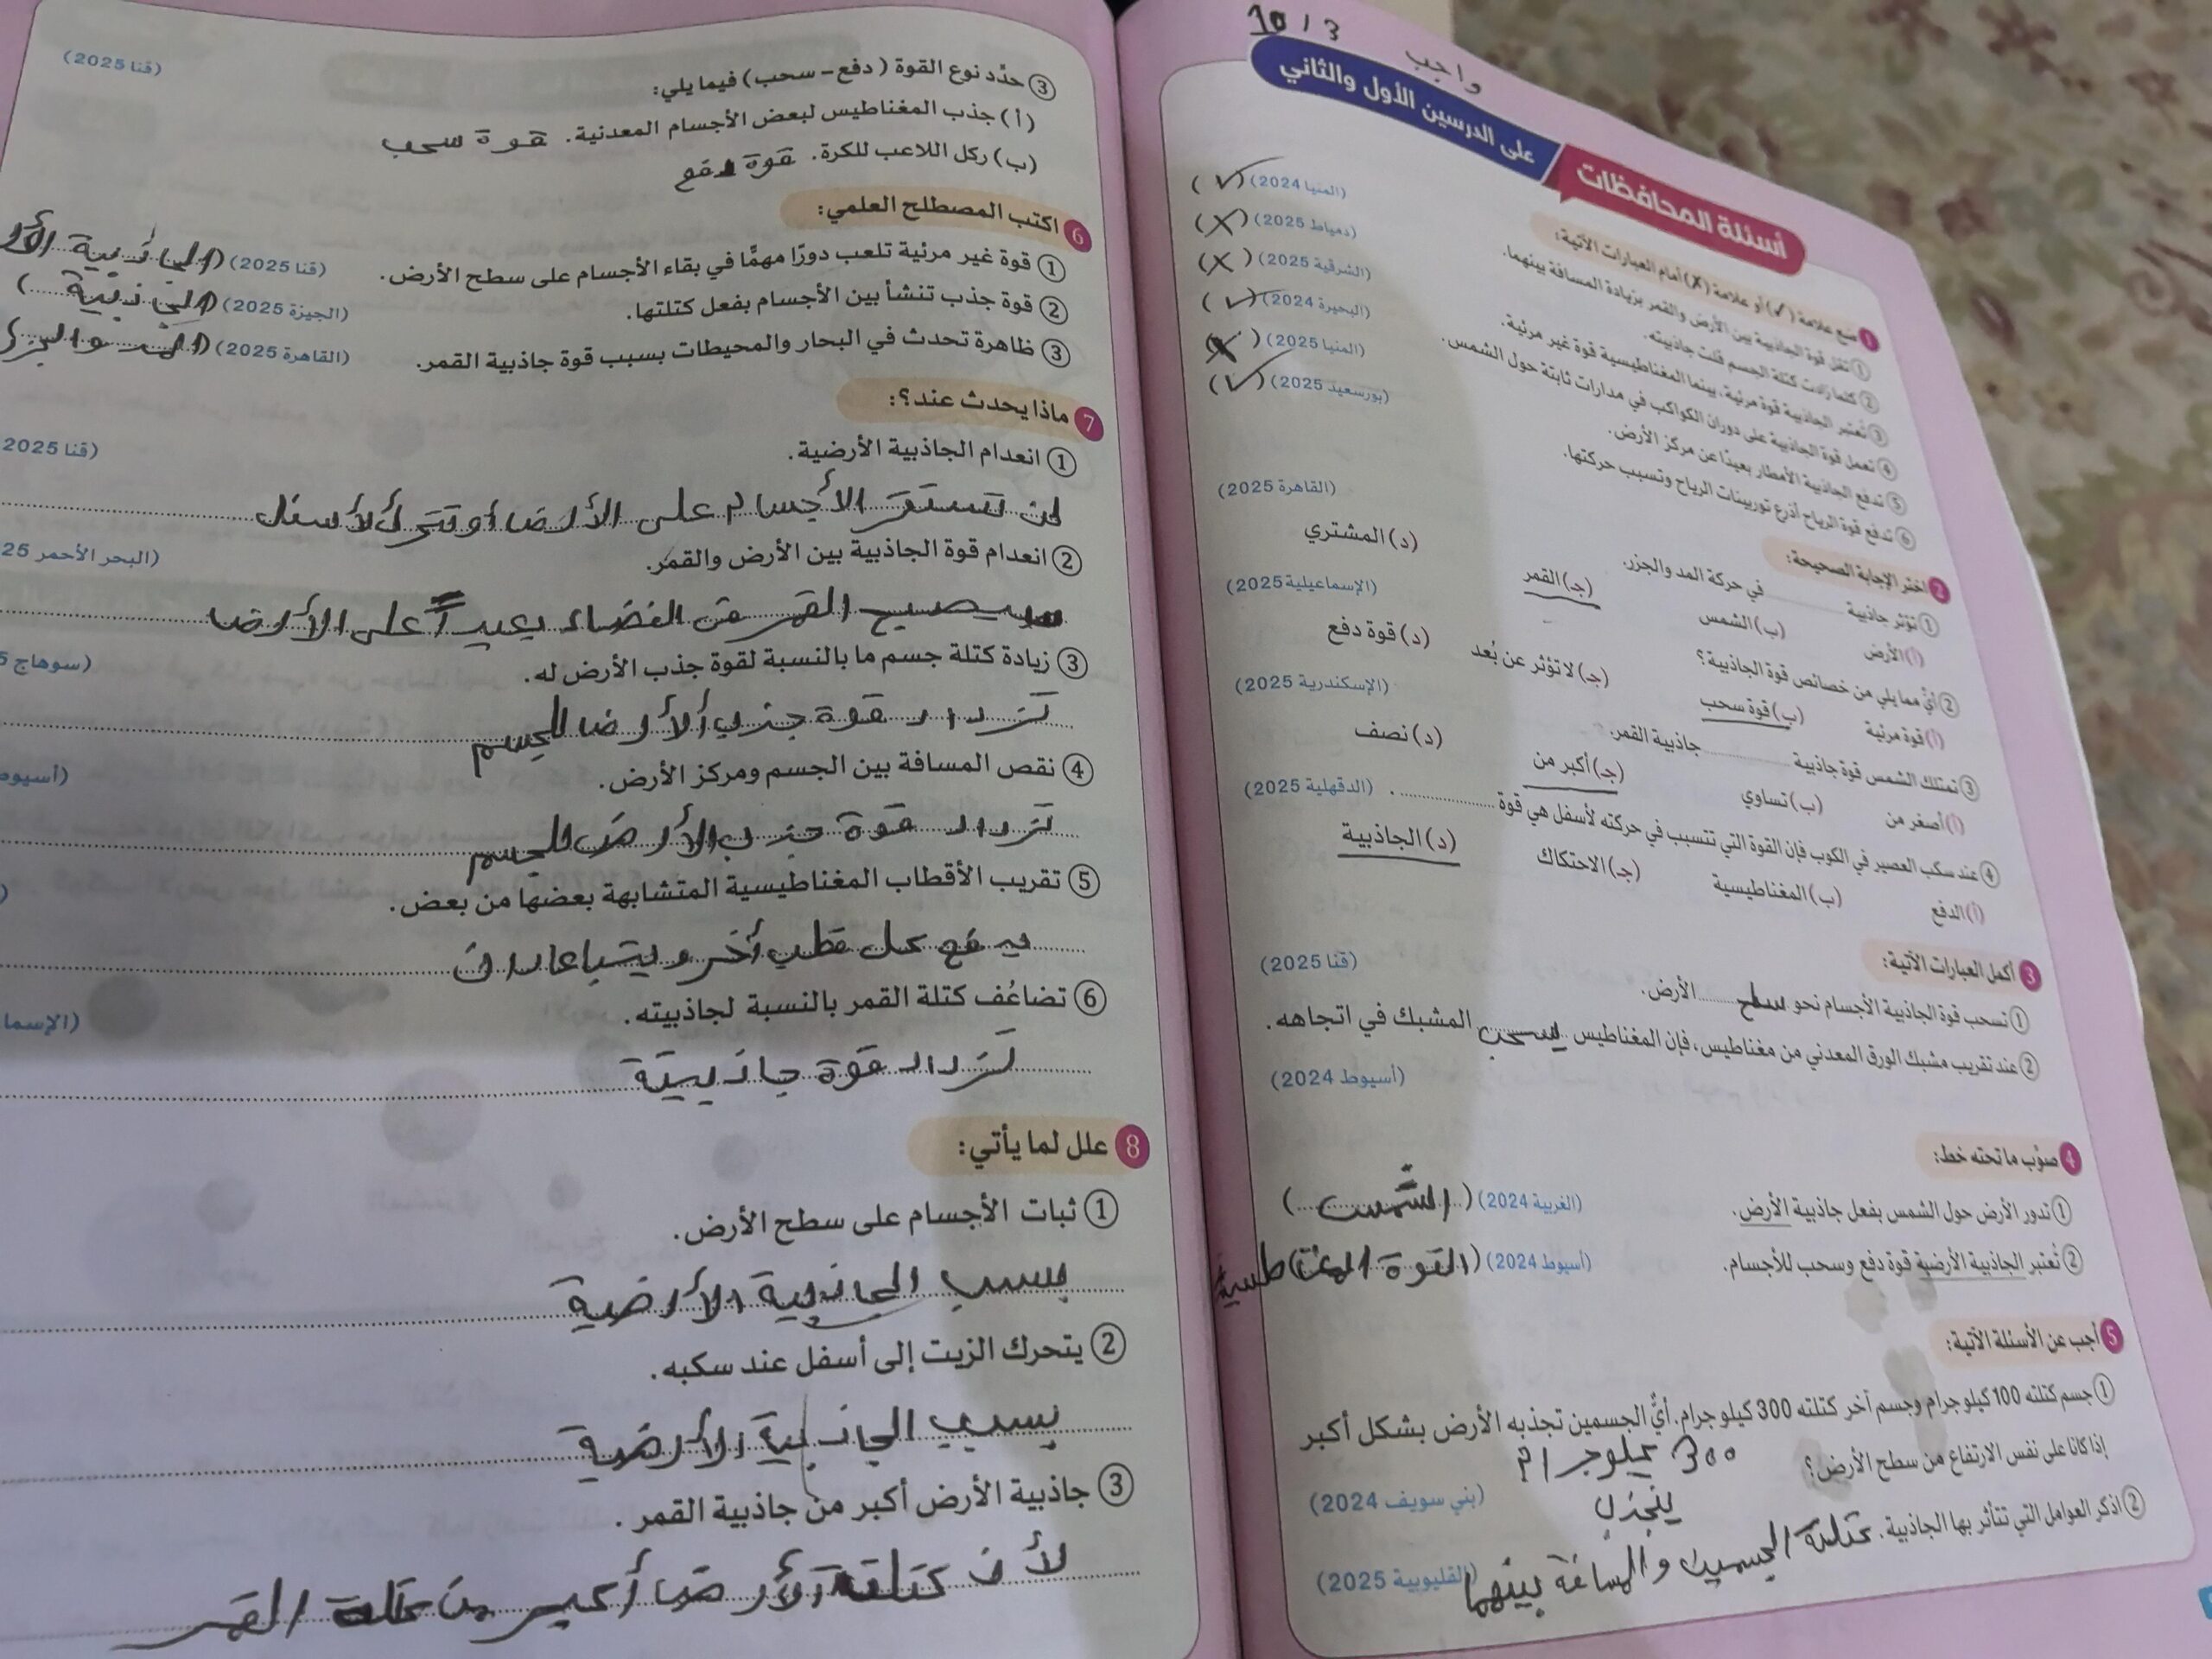 10 / 3
واجب
أسئلة المحافظات على الدرسين الأول والثاني
1 ضع علامة (✓) أو علامة (✗) أمام العبارات الآتية:
① تقل قوة الجاذبية بين الأرض والقمر بزيادة المسافة بينهما. (المنيا 2024) (✓)
② كلما زادت كتلة الجسم قلت جاذبيته. (دمياط 2025) (X)
③ تُعتبر الجاذبية قوة مرئية، بينما المغناطيسية قوة غير مرئية. (الشرقية 2025) (X)
④ تعمل قوة الجاذبية على دوران الكواكب في مدارات ثابتة حول الشمس. (البحيرة 2024) (✓)
⑤ تدفع الجاذبية الأمطار بعيدًا عن مركز الأرض. (المنيا 2025) (X)
⑥ تدفع قوة الرياح أذرع توربينات الرياح وتسبب حركتها. (بورسعيد 2025) (✓)
2 اختر الإجابة الصحيحة:
① تؤثر جاذبية ........ في حركة المد والجزر. (القاهرة 2025)
(أ) الأرض (ب) الشمس (جـ) القمر (د) المشتري
② أيٌّ مما يلي من خصائص قوة الجاذبية؟ (الإسماعيلية 2025)
(أ) قوة مرئية (ب) قوة سحب (جـ) لا تؤثر عن بُعد (د) قوة دفع
③ تمتلك الشمس قوة جاذبية ........ جاذبية القمر. (الإسكندرية 2025)
(أ) أصغر من (ب) تساوي (جـ) أكبر من (د) نصف
④ عند سكب العصير في الكوب فإن القوة التي تتسبب في حركته لأسفل هي قوة ........ . (الدقهلية 2025)
(أ) الدفع (ب) المغناطيسية (جـ) الاحتكاك (د) الجاذبية
3 أكمل العبارات الآتية:
① تسحب قوة الجاذبية الأجسام نحو سطح الأرض. (قنا 2025)
② عند تقريب مشبك الورق المعدني من مغناطيس، فإن المغناطيس يسحب المشبك في اتجاهه.
(أسيوط 2024)
4 صوِّب ما تحته خط:
① تدور الأرض حول الشمس بفعل جاذبية الأرض. (الغربية 2024) (الشمس)
② تُعتبر الجاذبية الأرضية قوة دفع وسحب للأجسام. (أسيوط 2024) (القوة المغناطسية)
5 أجب عن الأسئلة الآتية:
① جسم كتلته 100 كيلو جرام وجسم آخر كتلته 300 كيلو جرام. أيُّ الجسمين تجذبه الأرض بشكل أكبر
إذا كانا على نفس الارتفاع من سطح الأرض؟ 300 كيلوجرام
(بني سويف 2024)
② اذكر العوامل التي تتأثر بها الجاذبية. كتلة الجسمين والمسافة بينهما (القليوبية 2025)
③ حدِّد نوع القوة (دفع – سحب) فيما يلي: (قنا 2025)
(أ) جذب المغناطيس لبعض الأجسام المعدنية. قوة سحب
(ب) ركل اللاعب للكرة. قوة دفع
6 اكتب المصطلح العلمي:
① قوة غير مرئية تلعب دورًا مهمًّا في بقاء الأجسام على سطح الأرض. (قنا 2025) (الجاذبية الأر
② قوة جذب تنشأ بين الأجسام بفعل كتلتها. (الجيزة 2025) (الجاذبية)
③ ظاهرة تحدث في البحار والمحيطات بسبب قوة جاذبية القمر. (القاهرة 2025) (المد والجزر
7 ماذا يحدث عند؟:
① انعدام الجاذبية الأرضية. (قنا 2025
لن تستقر الأجسام على الأرض أو تتحرك لأسفل
② انعدام قوة الجاذبية بين الأرض والقمر. (البحر الأحمر 25
سيصبح القمر في الفضاء بعيداً على الأرض
③ زيادة كتلة جسم ما بالنسبة لقوة جذب الأرض له. (سوهاج 5
تزداد قوة جذب الأرض للجسم
④ نقص المسافة بين الجسم ومركز الأرض. (أسيوط
تزداد قوة جذب الأرض للجسم
⑤ تقريب الأقطاب المغناطيسية المتشابهة بعضها من بعض.
يدفع كل قطب أخر ويتباعدان
⑥ تضاعُف كتلة القمر بالنسبة لجاذبيته. (الإسما
تزداد قوة جاذبيتة
8 علل لما يأتي:
① ثبات الأجسام على سطح الأرض.
بسبب الجاذبية الأرضية
② يتحرك الزيت إلى أسفل عند سكبه.
بسبب الجاذبية الأرضية
③ جاذبية الأرض أكبر من جاذبية القمر.
لأن كتلة الأرض أكبر من كتلة القمر